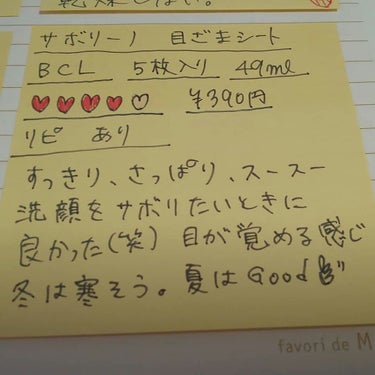 乾燥しない。
サボリーノ 目ざまシート
BCL 5枚入り 49ml
♥♥♥♥♡ ¥390円
リピ あり
すっきり、さっぱり、スースー
洗顔をサボりたいときに
良かった(笑) 目が覚める感じ
冬は寒そう。夏はGood
favori de M